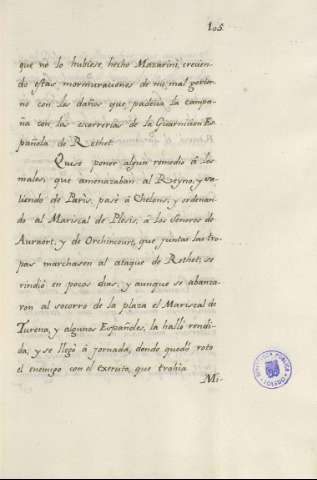 105
que no lo hubiese, hecho Mazarini, crecien-
do estas mormuraciones de mi mal govier-
no con los daños que, padecia la campa-
ña con las correrias de la Guarnicion Es-
pañola de Rethet.
Quise poner algun remedio á los
males que amenazaban al Reyno, y sa-
liendo de Paris, pasè à Chelons; y ordenan-
do al Mariscal de Plesis, á los Señores de
y de Orchincourt, que juntar las tro-
pas marchasen al ataque de Rethet; se
rindió en pocos dias, y aunque se abanza-
ron al socorro de la plaza el Mariscal de
Turena, y algunos Españoles, la halló rendi-
da, y se llegó á jornada, donde quedó roto
el enemigo con el exercito, que trahia
Mi-
BIBLIOTECA PUBLICA
TOLEDO